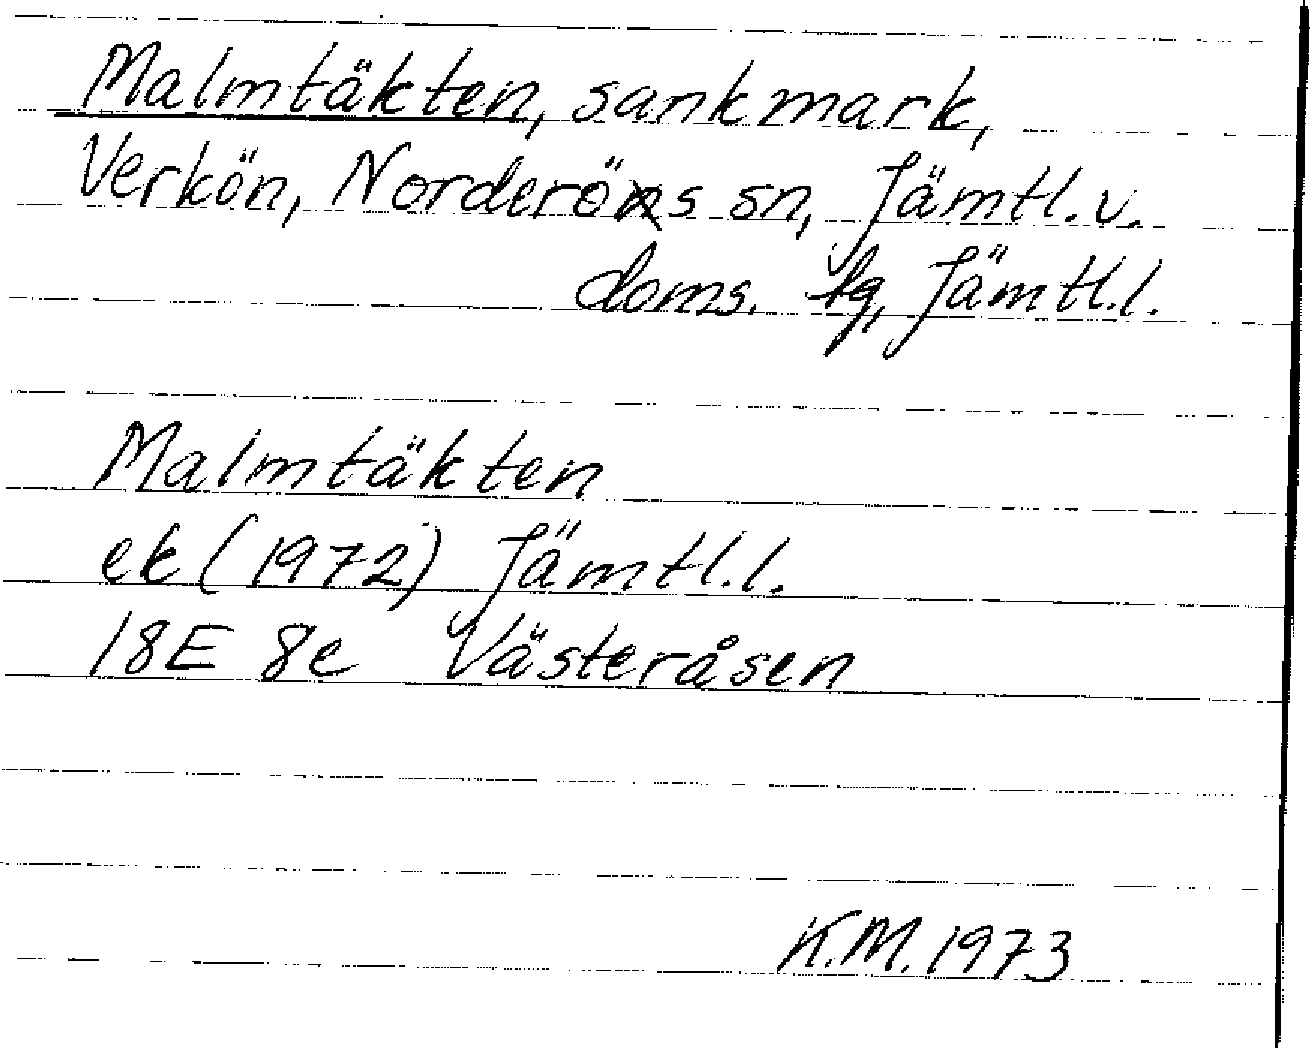 Malmtäkten, sankmark,
Verkön, Norderös sn, Jämtl. v.
doms. tg, Jämtl. l.
Malmtäkten
ek (1972) Jämtl. l.
18E 8e Västeråsen
K.M. 1973